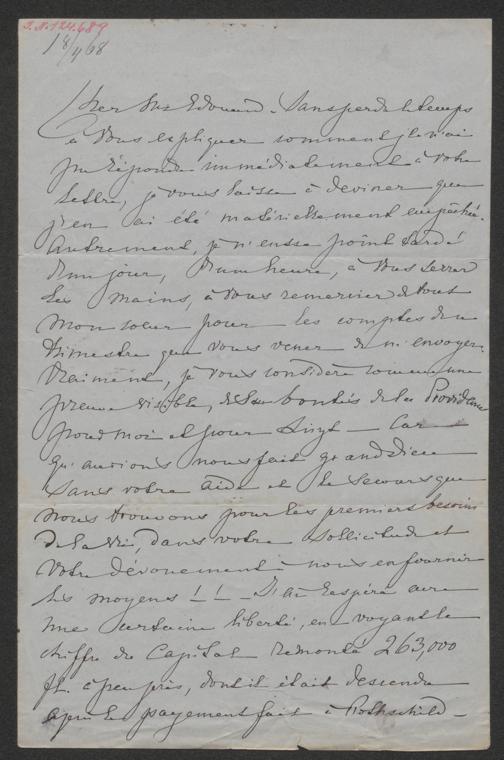 I.N. 124.689
18/4 68
Cher bon Edouard. Sans perdre le temps
à vous expliquer comment je n'ai
pu répondre immédiatement à votre
lettre, je vous laisse à deviner que
j'en ai été matériellement empêchée.
Autrement, je n'eusse point tardé
d'un jour, d'une heure, à vous serrer
les mains, à vous remercier de tout
mon cœur pour les comptes du
trimestre que vous venez de m'envoyer.
Vraiment, je vous considère comme une
preuve visible, des bontés de la Providence
pour moi et pour Liszt — Car
qu'aurions nous fait grand Dieu
sans votre aide et le secours que
nous trouvons pour les premiers besoins
de la vie, dans votre sollicitude et
votre dévouement à nous en fournir
les moyens !! — J'ai respiré avec
une certaine liberté, en voyant le
chiffre du Capital remonté 263,000
fl. à peu près, dont il était descendu
après le payement fait à Rothschild —